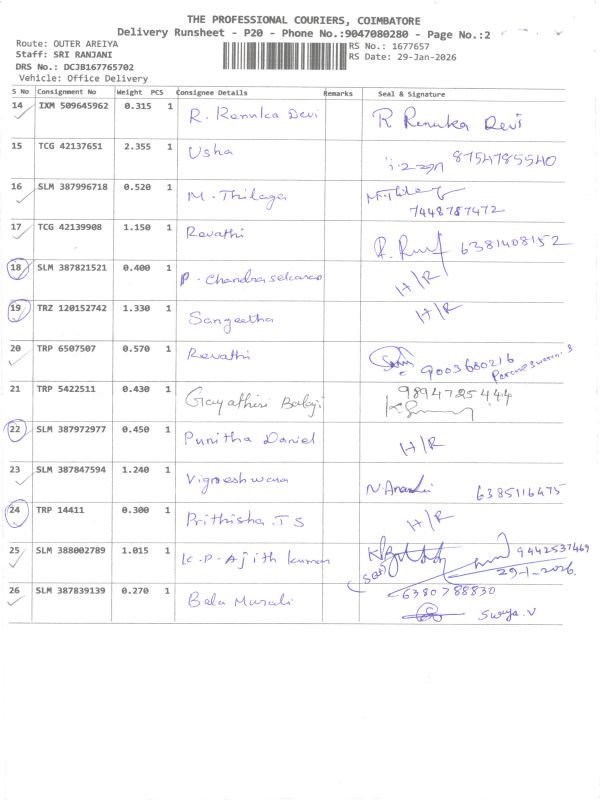 THE PROFESSIONAL COURIERS, COIMBATORE
Delivery Runsheet - P20 - Phone No.:9047080280 - Page No.:2
Route: OUTER AREIYA
RS No.: 1677657
Staff: SRI RANJANI
RS Date: 29-Jan-2026
DRS No.: DCJB167765702
Vehicle: Office Delivery
S No Consignment No Weight PCS Consignee Details Remarks Seal & Signature
14 IXM 509645962 0.315 1 R. Renuka Devi R Renuka Devi
15 TCG 42137651 2.355 1 Usha 8754785540
16 SLM 387996718 0.520 1 M. Thilaga
7448787472
17 TCG 42139908 1.150 1 Revathi 6381408152
18 SLM 387821521 0.400 1 P. Chandrasekaran H/R
19 TRZ 120152742 1.330 1 Sangeetha H/R
20 TRP 6507507 0.570 1 Revathi 9003680216
Parameswaran.S
21 TRP 5422511 0.430 1 Gayathiri Balaji 9894725444
22 SLM 387972977 0.450 1 Punitha Daniel H/R
23 SLM 387847594 1.240 1 Vigneshwara 6385116475
24 TRP 14411 0.300 1 Prithisha.TS H/R
25 SLM 388002789 1.015 1 K.P-Ajith kumar 9442537469
29-1-2026.
26 SLM 387839139 0.270 1 Bala Murali 6380788830
Surya.V